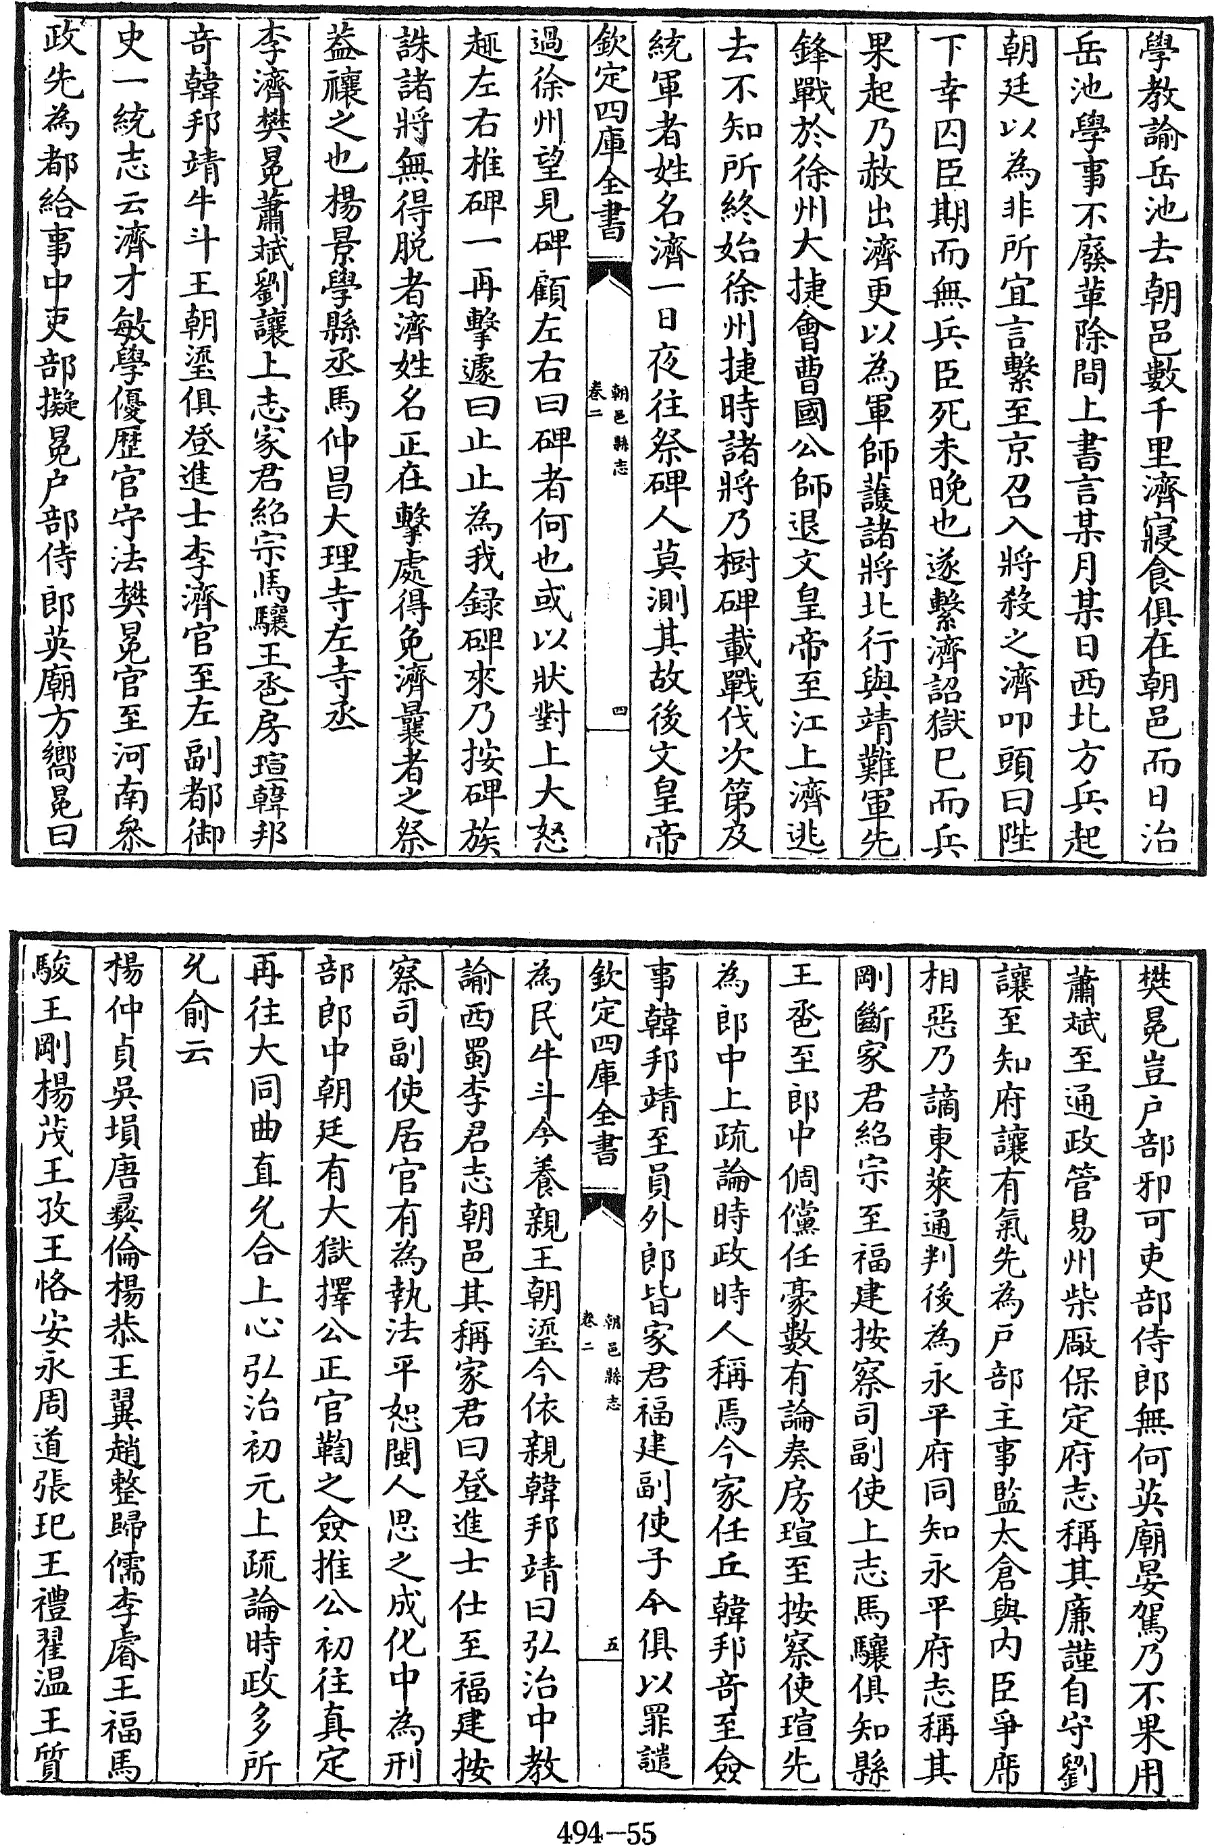 學教諭岳池去朝邑數千里濟寢食俱在朝邑而日治
岳池學事不廢革除間上書言某月某日西北方兵起
朝廷以為非所宜言繫至京召入將殺之濟叩頭曰陛
下幸囚臣期而無兵臣死未晩也遂繫濟詔獄巳而兵
果起乃赦出濟更以為軍師䕶諸將北行與靖難軍先
鋒戰於徐州大捷㑹曹國公師退文皇帝至江上濟逃
去不知所終始徐州捷時諸將乃樹碑載戰伐次第及
統軍者姓名濟一日夜往祭碑人莫測其故後文皇帝
欽定四庫全書
朝邑縣志
卷二
四
過徐州望見碑顧左右曰碑者何也或以狀對上大怒
趣左右椎碑一再擊遽曰止止為我録碑來乃按碑族
誅諸將無得脱者濟姓名正在擊處得免濟曩者之祭
葢禳之也楊景學縣丞馬仲昌大理寺左寺丞
李濟樊冕蕭斌劉讓上志家君紹宗馬驤王盉房瑄韓邦
奇韓邦靖牛斗王朝㻶俱登進士李濟官至左副都御
史一統志云濟才敏學優歴官守法樊冕官至河南叅
政先為都給事中吏部擬冕户部侍郎英廟方嚮冕曰
樊冕豈户部邪可吏部侍郎無何英廟晏駕乃不果用
蕭斌至通政管易州柴厰保定府志稱其廉謹自守劉
讓至知府讓有氣先為户部主事監太倉與内臣爭席
相惡乃謫東萊通判後為永平府同知永平府志稱其
剛斷家君紹宗至福建按察司副使上志馬驤俱知縣
王盉至郎中倜儻任豪數有論奏房瑄至按察使瑄先
為郎中上疏論時政時人稱焉今家任丘韓邦奇至僉
事韓邦靖至員外郎皆家君福建副使子今俱以罪譴
欽定四庫全書
朝邑縣志
卷二
五
為民牛斗今養親王朝㻶今依親韓邦靖曰弘治中教
諭西蜀李君志朝邑其稱家君曰登進士仕至福建按
察司副使居官有為執法平恕閩人思之成化中為刑
部郎中朝廷有大獄擇公正官鞫之僉推公初往真定
再往大同曲直允合上心弘治初元上疏論時政多所
允俞云
楊仲貞吳塤唐彛倫楊恭王翼趙整歸儒李睿王福馬
駿王剛楊茂王孜王恪安永周道張玘王禮翟温王質
494—55